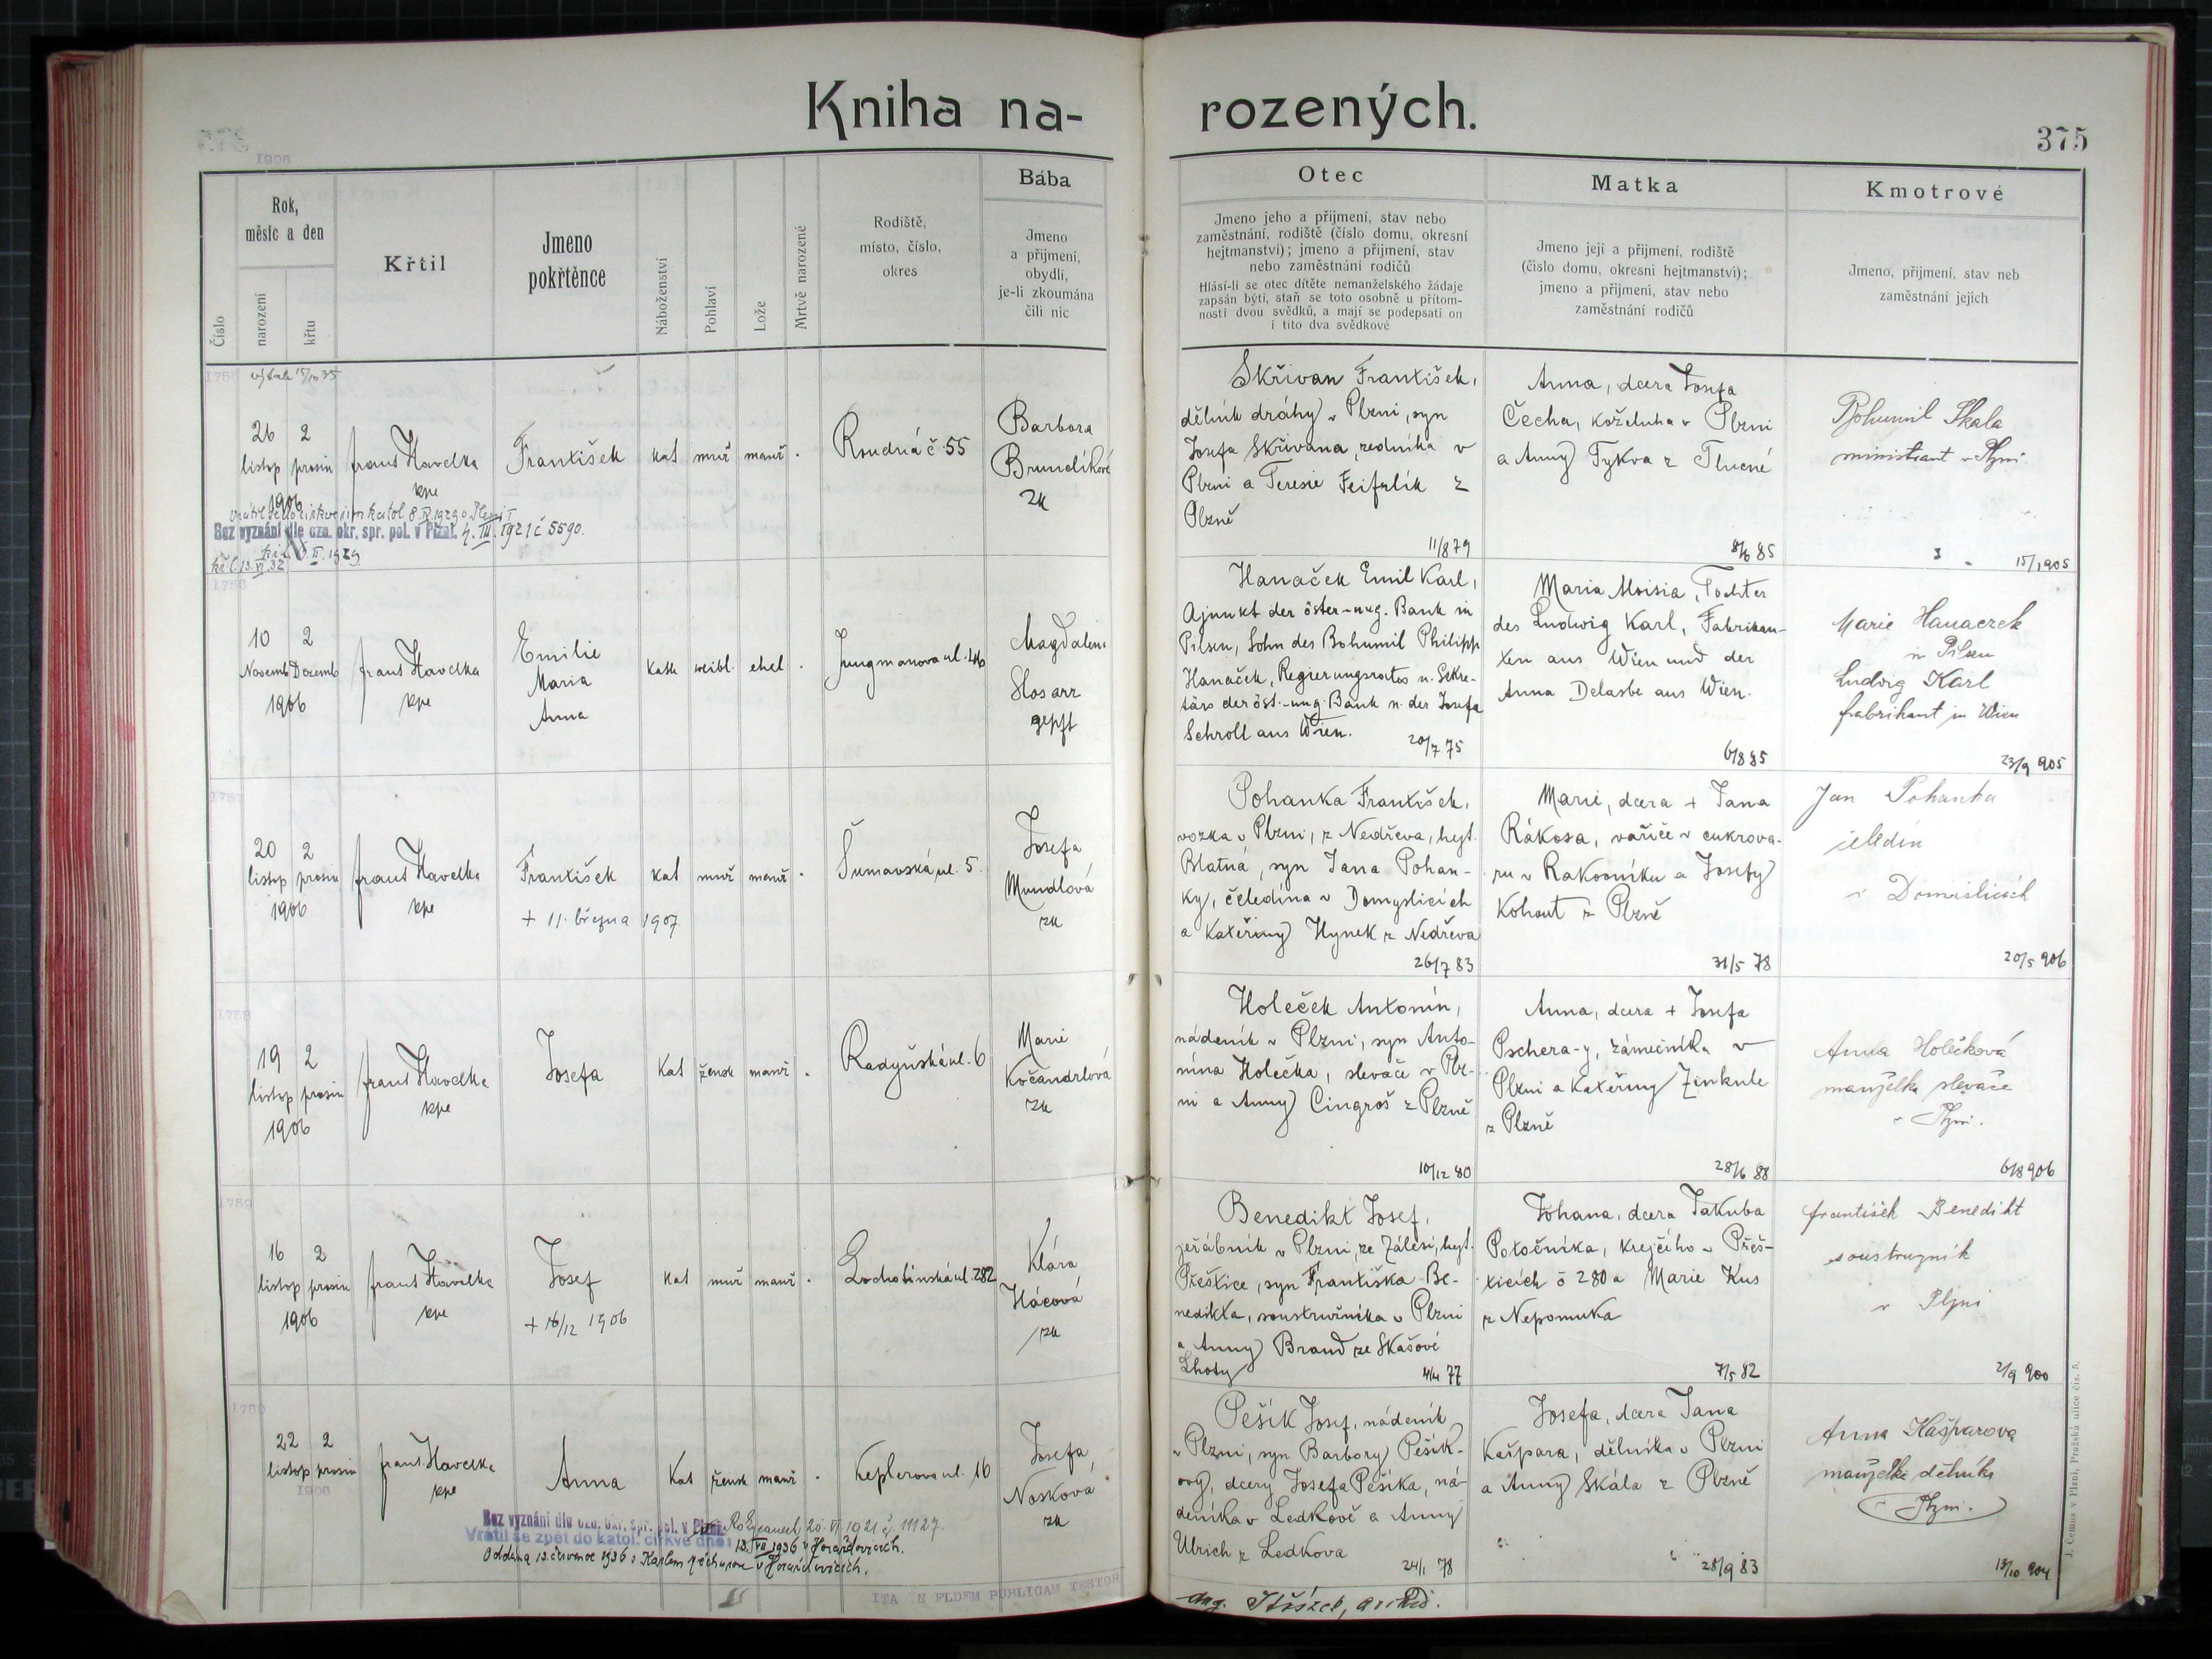 Kniha na-
rozených.
375
1906
Číslo
Rok,
měsíc a den
narození
křtu
Křtil
Jmeno
pokřtěnce
Náboženství
Pohlaví
Lože
Mrtvě narozené
Rodiště,
místo, číslo,
okres
Bába
Jmeno
a přijmení,
obydlí,
je-li zkoumána
čili nic
Otec
Jmeno jeho a přijmení, stav nebo
zaměstnání, rodiště (číslo domu, okresní
hejtmanství); jmeno a přijmení, stav
nebo zaměstnání rodičů
Hlásí-li se otec dítěte nemanželského žádaje
zapsán býti, staň se toto osobně u přítom-
nosti dvou svědků, a mají se podepsati on
i tito dva svědkové
Matka
Jmeno její a přijmení, rodiště
(číslo domu, okresní hejtmanství);
jmeno a přijmení, stav nebo
zaměstnání rodičů
Kmotrové
Jmeno, přijmení, stav neb
zaměstnání jejich
1755
26 2
listop prosin
1906
frant Havelka
kpe
František
kat muž manž .
Roudná č 55
Barbora
Brundlíková
zk
Bez vyznání dle ozn. okr. spr. pol. v Plzni. 4. III. 1921 č 5590.
kř. l. 13. VI. 32
Skřivan František,
dělník dráhy v Plzni, syn
Josefa Skřivana, zedníka v
Plzni a Teresie Feifrlík z
Plzně
11/8 79
Anna, dcera Josefa
Čecha, koželuha v Plzni
a Anny Tykva z Tlucné
8/6 85
Bohumil Skala
ministrant v Plzni
15/1 905
1756
10 2
Novemb Dezemb
1906
frant Havelka
kpe
Emilie
Maria
Anna
kath weibl. ehel .
Jungmanova ul. 46
Magdalena
Slosarz
gepft
Hanaček Emil Karl,
Ajunkt der öster-ung. Bank in
Pilsen, Sohn des Bohumil Philipp
Hanaček, Regierungsrates u. Sekre-
tärs der öst.-ung. Bank u. der Josefa
Schroll aus Wien.
20/7 75
Maria Aloisia, Tochter
des Ludwig Karl, Fabrikan-
ten aus Wien und der
Anna Delasbe aus Wien.
6/8 85
Marie Hanaczek
in Pilsen
Ludvig Karl
fabrikant in Wien
23/9 905
1757
20 2
listop prosin
1906
frant Havelka
kpe
František
+ 11. března 1907
kat muž manž .
Šumavská ul. 5
Josefa
Mundlová
zk
Pohanka František,
vozka v Plzni, z Nedřeva, hejt.
Blatná, syn Jana Pohan-
ky, čeledína v Domyslicích
a Kateřiny Hynek z Nedřeva
26/7 83
Marie, dcera + Jana
Rákosa, vařiče v cukrova-
ru v Rakovníku a Josefy
Kohout z Plzně
31/5 78
Jan Pohanka
čeledín
v Domislicích
20/5 906
1758
19 2
listop prosin
1906
frant Havelka
kpe
Josefa
kat žensk manž .
Radyňská ul. 6
Marie
Kočandrlová
zk
Holeček Antonín,
nádeník v Plzni, syn Anto-
nína Holečka, slevače v Plz-
ni a Anny Cingroš z Plzně
10/12 80
Anna, dcera + Josefa
Pschera-y, zámečníka v
Plzni a Kateřiny Zinkule
z Plzně
28/6 88
Anna Holečková
manželka slevače
v Plzni.
6/8 906
1759
16 2
listop prosin
1906
frant Havelka
kpe
Josef
+ 16/12 1906
kat muž manž .
Lochotínská ul. 282
Klára
Hácová
zk
Benedikt Josef,
jeřábník v Plzni, ze Zálesí, hejt.
Přeštice, syn Františka Be-
nedikta, soustružníka v Plzni
a Anny Brand ze Skašové
Lhoty
4/4 77
Johana, dcera Jakuba
Potočníka, krejčího v Přeš-
ticích č 280 a Marie Kus
z Nepomuka
7/5 82
františek Benedikt
soustruzník
v Plzni
2/9 900
1760
22 2
listop prosin
1906
frant. Havelka
kpe
Anna
Kat žensk manž .
Keplerova ul. 16
Josefa
Nosková
zk
Bez vyznání dle ozn. okr. spr. pol. v Rokycanech 20. VI. 1921 č. 11127.
Vrátil se zpět do katol. církve dne: 13. VII 1936 v Horažďovicích.
Oddána 13. července 1936 s Karlem Pěchurou v Horažďovicích.
Pešík Josef, nádeník
v Plzni, syn Barbory Pešík-
ové, dcery Josefa Pešíka, ná-
deníka v Ledkově a Anny
Ulrich z Ledkova
24/1 78
Josefa, dcera Jana
Kašpara, dělníka v Plzni
a Anny Skála z Plzně
28/9 83
Anna Kašparova
manželka dělníka
v Plzni.
13/10 904
ITA IN FIDEM PUBLICAM TESTOR
J. Čemus v Plzni, Pražská ulice čís. 5.